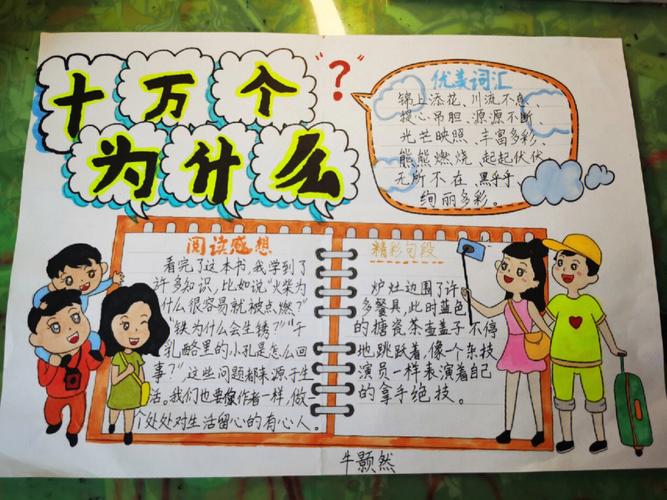 十万个
为什么
"?"
优美词汇
锦上添花、川流不息、
提心吊胆、源源不断
光芒映照、丰富多彩、
熊熊燃烧、起起伏伏
无所不在、黑乎乎、
绚丽多彩。
阅读感想
看完了这本书,我学到了
许多知识,比如说"火柴为
什么很容易就被点燃?"
"铁为什么会生锈?""干
乳酪里的小孔是怎么回
事?",这些问题都来源于生
活。我们也要像作者一样,做一
个处处对生活留心的有心人。
精彩句段
炉灶边围了许
多餐具,此时蓝色
的搪瓷茶壶盖子不停
地跳跃着,像个杂技
演员一样表演着自己
的拿手绝技。
牛颢然